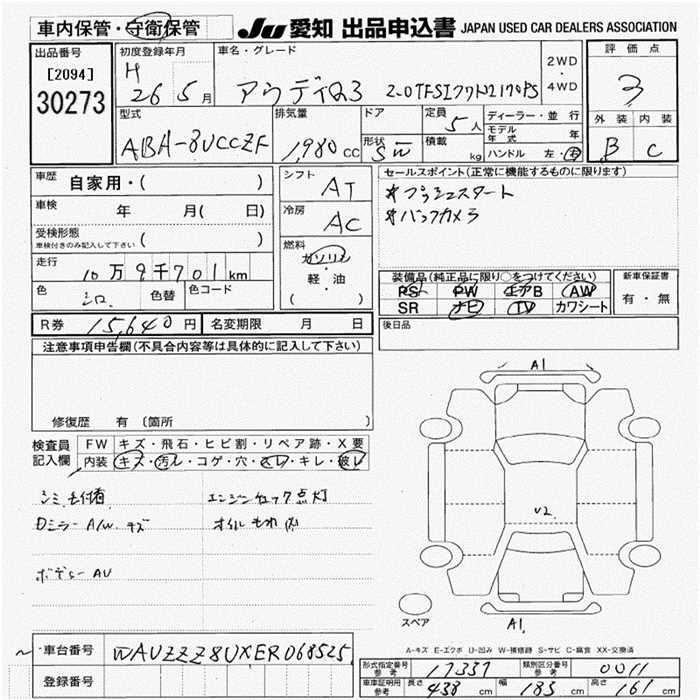 車内保管・守衛保管
JU 愛知 出品申込書 JAPAN USED CAR DEALERS ASSOCIATION
出品番号
[2094]
30273
初度登録年月
H 26 5月
車名・グレード
アウディQ3 2.0TFSIクワトロ170PS
2WD
・
4WD
評価点
3
外装 内装
B C
型式
ABA-8UCCZF
排気量
1,980cc
ドア
形状 SW
定員
5人
積載
kg
ディーラー・並行
モデル年式 年
ハンドル 左・右
車歴
自家用・( )
車検
年 月( 日)
受検形態
車検付きのみ記入して下さい
( )
走行
10万9千701km
色
シロ
色替
色コード
シフト
AT
冷房
AC
燃料
ガソリン
・
軽・油
( )
セールスポイント(正常に機能するものに限ります)
*プッシュスタート
*バックカメラ
装備品(純正品に限り○をつけてください)
PS PW エアB AW
SR ナビ TV カワシート
新車保証書
有・無
後日品
R券 15,640円
名変期限 月 日
注意事項申告欄(不具合内容等は具体的に記入して下さい)
修復歴 有 〔箇所 〕
検査員
記入欄
FW キズ・飛石・ヒビ割・リペア跡・X要
内装 キズ・汚レ・コゲ・穴・スレ・キレ・破レ
シミ 毛付着
エンジンチェック点灯
Dミラー A/W キズ
オイルもれ
ボデー AU
A1
U2
A1
スペア
A-キズ E-エクボ U-凹み W-補修跡 S-サビ C-腐食 XX-交換済
車台番号 WAUZZZ8UXER068525
登録番号
形式指定番号 参考 17337
類別区分番号 参考 0011
車庫証明用 参考 長さ 438cm 幅 183cm 高さ 161cm